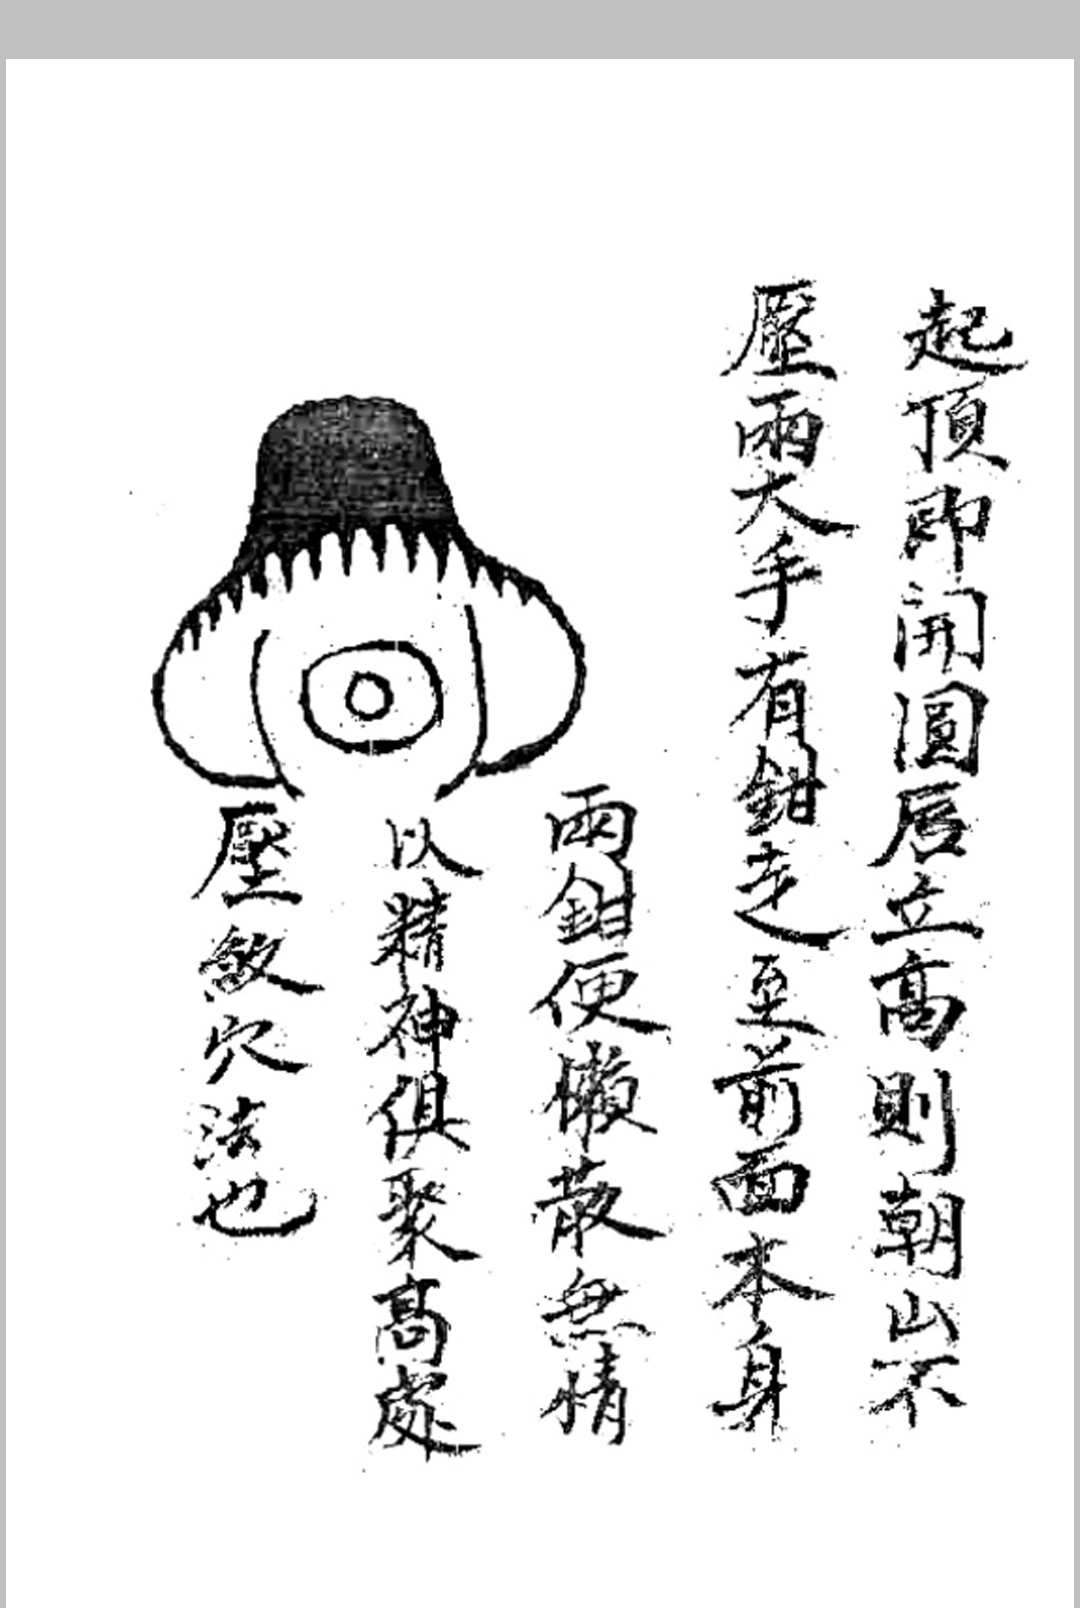 起頂即開圓唇立高則朝山不
壓兩大手有鉗走至前面本身
兩鉗便懶散無情
以精神俱聚高處
壓敛穴法也